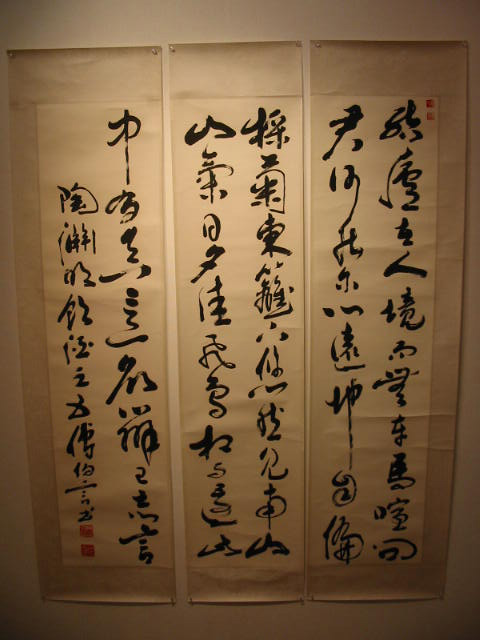 結廬在人境而無車馬喧問
君何能爾心遠地自偏
採菊東籬下悠然見南山
山氣日夕佳飛鳥相與還此
中有真意欲辨已忘言
陶淵明飲酒之五傅伯言書